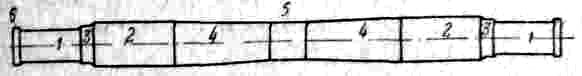 6 1 3 2 4 5 4 2 3 1